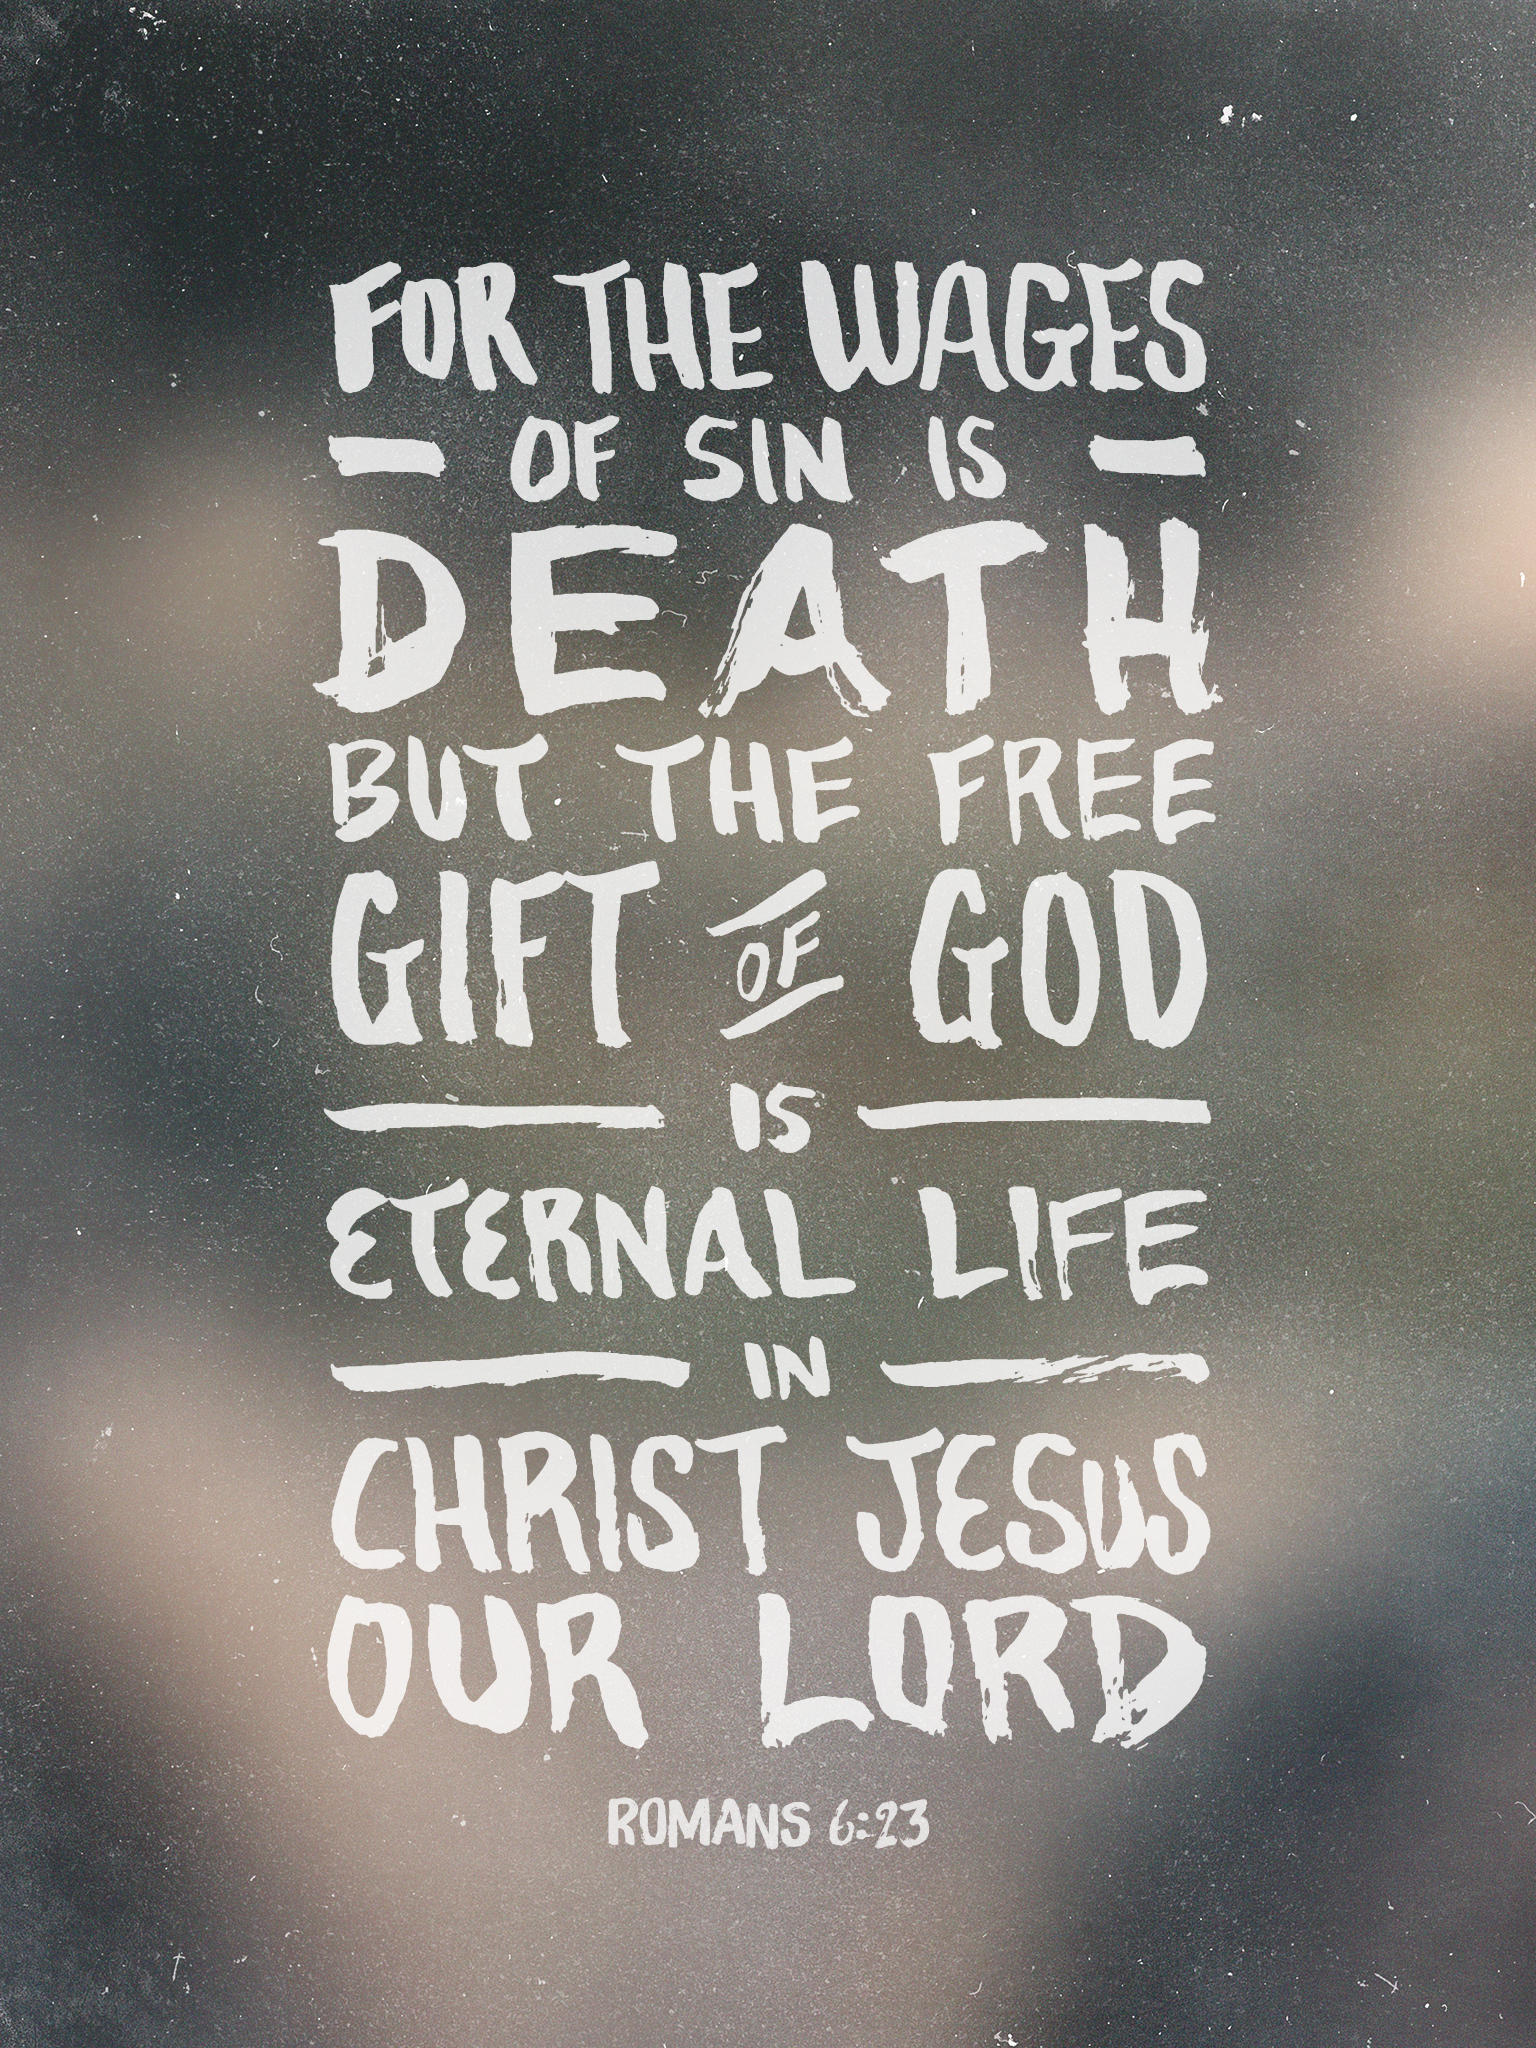 FOR THE WAGES
OF SIN IS
DEATH
BUT THE FREE
GIFT OF GOD
IS
ETERNAL LIFE
IN
CHRIST JESUS
OUR LORD
ROMANS 6:23